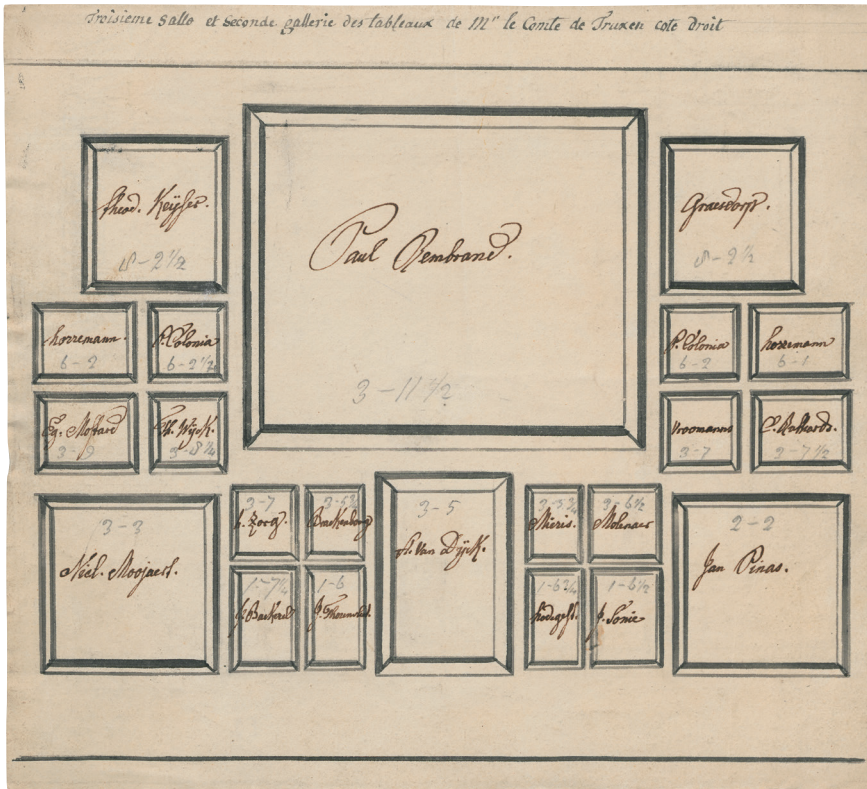 Troisieme Salle et Seconde gallerie des tableaux de Mr le Comte de Truxen coté Droit
Theod. Keijser.
8-2 1/2
Paul Rembrand.
3-11 1/2
Graesdorp.
8-2 1/2
horremann.
6-2
P. Colonia
6-2 1/2
P. Colonia
6-2
horremann
6-1
Eg. Mostard
3-9
Th. Wyck.
3-8 1/4
Vroomanns
3-7
2-7 1/2
3-3
Nicl. Moojaert.
3-7
h. Zorg.
Brackenborg
3-5
A. van Dÿck.
3-5 3/4
Mieris.
3-6 1/2
Molenaer
2-2
Jan Pinas.
1-7 1/4
1-6
1-6 3/4
hodgest.
1-6 1/2
J. Sonie